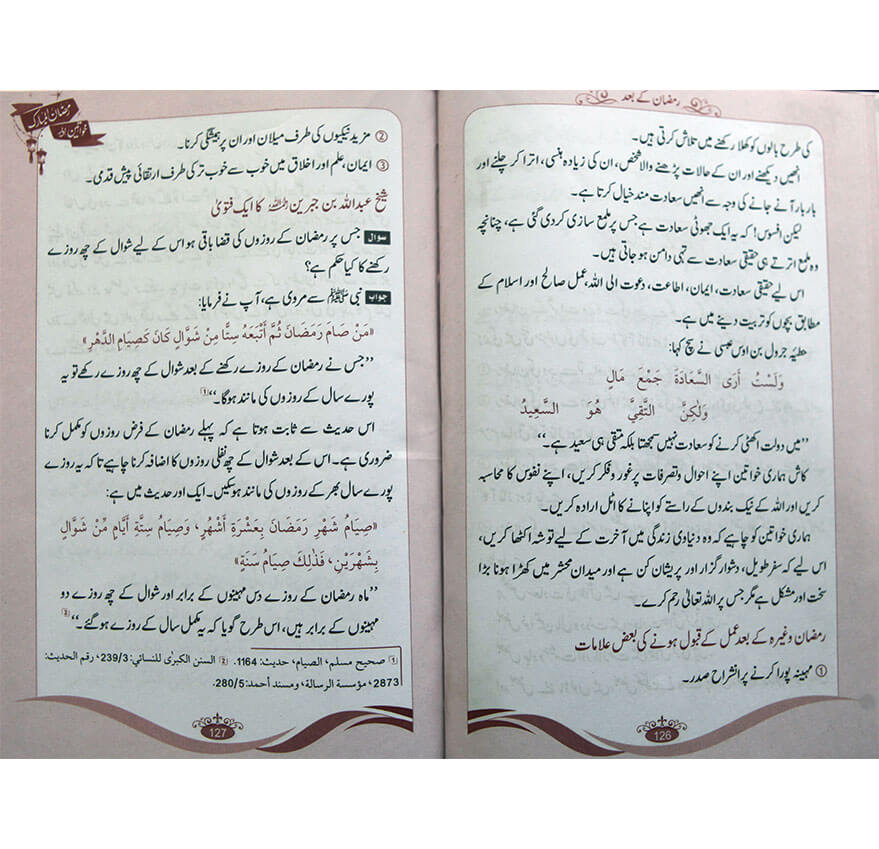 رمضان کے بعد
کی طرح بالوں کو کھلا رکھنے میں تلاش کرتی ہیں۔
انھیں دیکھنے اور ان کے حالات پڑھنے والا شخص، ان کی زیادہ ہنسی، اترا کر چلنے اور
بار بار آنے جانے کی وجہ سے انھیں سعادت مند خیال کرتا ہے۔
لیکن افسوس! کہ یہ ایک جھوٹی سعادت ہے جس پر ملمع سازی کر دی گئی ہے، چنانچہ
وہ ملمع اترتے ہی حقیقی سعادت سے تہی دامن ہو جاتی ہیں۔
اس لیے حقیقی سعادت، ایمان، اطاعت، دعوت الی اللہ، عمل صالح اور اسلام کے
مطابق بچوں کو تربیت دینے میں ہے۔
حطیئہ جرول بن اوس عبسی نے سچ کہا:
وَلَسْتُ أَرَى السَّعَادَةَ جَمْعَ مَالٍ
وَلٰكِنَّ التَّقِيَّ هُوَ السَّعِيدُ
”میں دولت اکٹھی کرنے کو سعادت نہیں سمجھتا بلکہ متقی ہی سعید ہے۔“
کاش ہماری خواتین اپنے احوال و تصرفات پر غور و فکر کریں، اپنے نفوس کا محاسبہ
کریں اور اللہ کے نیک بندوں کے راستے کو اپنانے کا اٹل ارادہ کریں۔
ہماری خواتین کو چاہیے کہ وہ دنیاوی زندگی میں آخرت کے لیے توشہ اکٹھا کریں،
اس لیے کہ سفر طویل، دشوار گزار اور پریشان کن ہے اور میدان محشر میں کھڑا ہونا بڑا
سخت اور مشکل ہے مگر جس پر اللہ تعالیٰ رحم کرے۔
رمضان وغیرہ کے بعد عمل کے قبول ہونے کی بعض علامات
① مہینہ پورا کرنے پر انشراح صدر۔
126
رمضان المبارک
خواتین
② مزید نیکیوں کی طرف میلان اور ان پر ہمیشگی کرنا۔
③ ایمان، علم اور اخلاق میں خوب سے خوب تر کی طرف ارتقائی پیش قدمی۔
شیخ عبداللہ بن جبرین رحمہ اللہ کا ایک فتویٰ
سوال جس پر رمضان کے روزوں کی قضا باقی ہو اس کے لیے شوال کے چھ روزے
رکھنے کا کیا حکم ہے؟
جواب نبی ﷺ سے مروی ہے، آپ نے فرمایا:
«مَنْ صَامَ رَمَضَانَ ثُمَّ أَتْبَعَهُ سِتًّا مِنْ شَوَّالٍ كَانَ كَصِيَامِ الدَّهْرِ»
”جس نے رمضان کے روزے رکھنے کے بعد شوال کے چھ روزے رکھے تو یہ
پورے سال کے روزوں کی مانند ہوگا۔“①
اس حدیث سے ثابت ہوتا ہے کہ پہلے رمضان کے فرض روزوں کو مکمل کرنا
ضروری ہے۔ اس کے بعد شوال کے چھ نفلی روزوں کا اضافہ کرنا چاہیے تاکہ یہ روزے
پورے سال بھر کے روزوں کی مانند ہو سکیں۔ ایک اور حدیث میں ہے:
«صِيَامُ شَهْرِ رَمَضَانَ بِعَشْرَةِ أَشْهُرٍ، وَصِيَامُ سِتَّةِ أَيَّامٍ مِّنْ شَوَّالٍ
بِشَهْرَيْنِ، فَذٰلِكَ صِيَامُ سَنَةٍ»
”ماہ رمضان کے روزے دس مہینوں کے برابر اور شوال کے چھ روزے دو
مہینوں کے برابر ہیں، اس طرح گویا کہ یہ مکمل سال کے روزے ہو گئے۔“②
① صحیح مسلم، الصیام، حدیث: 1164. ② السنن الکبرٰی للنسائي: 239/3، رقم الحدیث:
2873، مؤسسة الرسالة، ومسند أحمد: 280/5.
127